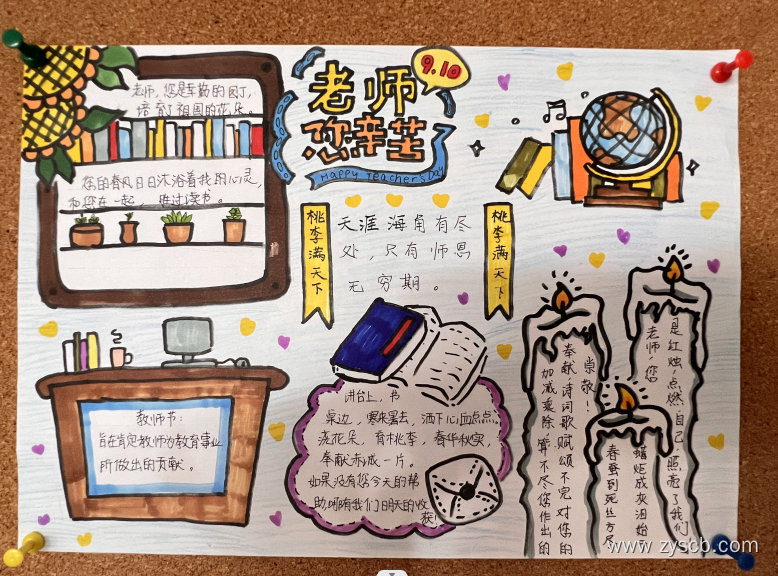 老师，您是辛勤的园丁，
培育了祖国的花朵。
您的春风日日沐浴着我的心灵，
和您在一起，胜过读书。
9.10
老师
您辛苦了
Happy Teacher's Day
桃李满天下
天涯海角有尽
处，只有师恩
无穷期。
桃李满天下
教师节：
旨在肯定教师为教育事业
所做出的贡献。
讲台上，书
桌边，寒来暑去，洒下心血点点。
浇花朵，育桃李，春华秋实，
奉献赤诚一片。
如果没有您今天的帮
助，哪有我们明天的收
获！
加减乘除算不尽您作出的
奉献诗词歌赋颂不完对您的
崇敬
春蚕到死丝方尽
蜡炬成灰泪始
老师，您
是红烛，点燃自己，照亮了我们
www.zyscb.com